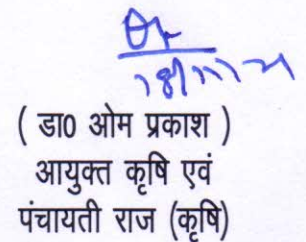 ( डा0 ओम प्रकाश )
आयुक्त कृषि एवं
पंचायती राज (कृषि)